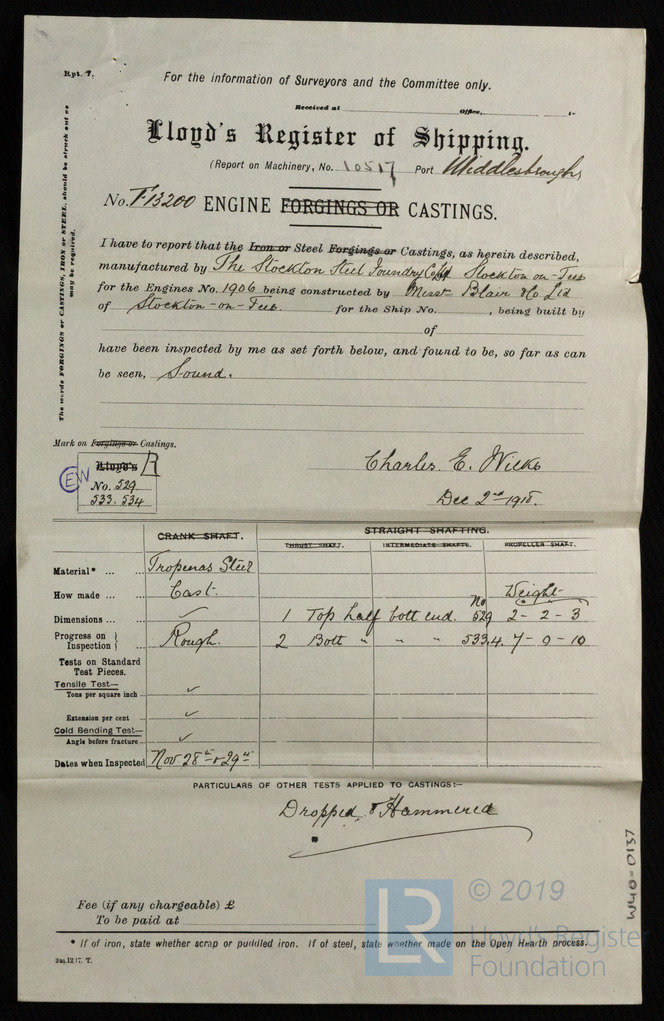 Rpt. 7.
For the information of Surveyors and the Committee only.
Received at Office,
Lloyd's Register of Shipping.
(Report on Machinery, No. 10517 Port Middlesbrough,
No. F13200 ENGINE FORGINGS OR CASTINGS.
The words FORGINGS or CASTINGS, IRON or STEEL, should be struck out as
may be required.
I have to report that the Iron or Steel Forgings or Castings, as herein described,
manufactured by The Stockton Steel Foundry Co Ld Stockton-on-Tees
for the Engines No. 1906 being constructed by Messrs Blair & Co Ltd
of Stockton-on-Tees. for the Ship No. , being built by
of
have been inspected by me as set forth below, and found to be, so far as can
be seen, Sound.
Mark on Forgings or Castings.
Lloyd's R
EW
No. 529
533. 534
Charles. E. Wilks
Dec 2nd 1918.
CRANK SHAFT. STRAIGHT SHAFTING.
THRUST SHAFT. INTERMEDIATE SHAFTS. PROPELLER SHAFT.
Material* ... ... Tropenas Steel
How made ... ... Cast. Weight
Dimensions ... ... ✓ 1 Top half bott end. No 529 2 - 2 - 3
Progress on Inspection } ... Rough. 2 Bott " " " 533.4. 7 - 0 - 10
Tests on Standard
Test Pieces.
Tensile Test—
Tons per square inch ... ✓
Extension per cent ✓
Cold Bending Test—
Angle before fracture ... ✓
Dates when Inspected Nov 28th & 29th
PARTICULARS OF OTHER TESTS APPLIED TO CASTINGS:—
Dropped, & Hammered
Fee (if any chargeable) £
To be paid at
* If of iron, state whether scrap or puddled iron. If of steel, state whether made on the Open Hearth process.
12.17. T.
W40-0137
LR
© 2019
Lloyd's Register
Foundation